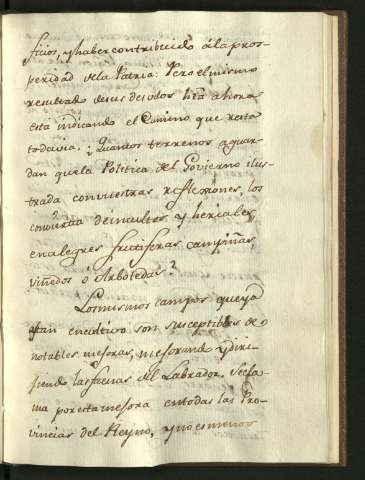 ficios, y haber contribuido á la pros-
peridad de la Patria. Pero el mismo
resultado de sus desvelos hta ahora
está indicando el Camino que resta
todavia. ¿Quantos terrenos aguar-
dan que la Politica del Govierno ilus-
trada con vuestras reflexiones, los
convierta de incultos, y heriales,
en alegres fructiferas campiñas,
viñedos o Arboledas?
Los mismos campos que ya
estan en cultivo son susceptibles de
notables mejoras, mejorando y diri-
giendo las faenas del Labrador. Secla-
ma por esta mejora en todas las Pro-
vincias del Reyno, y no es menos